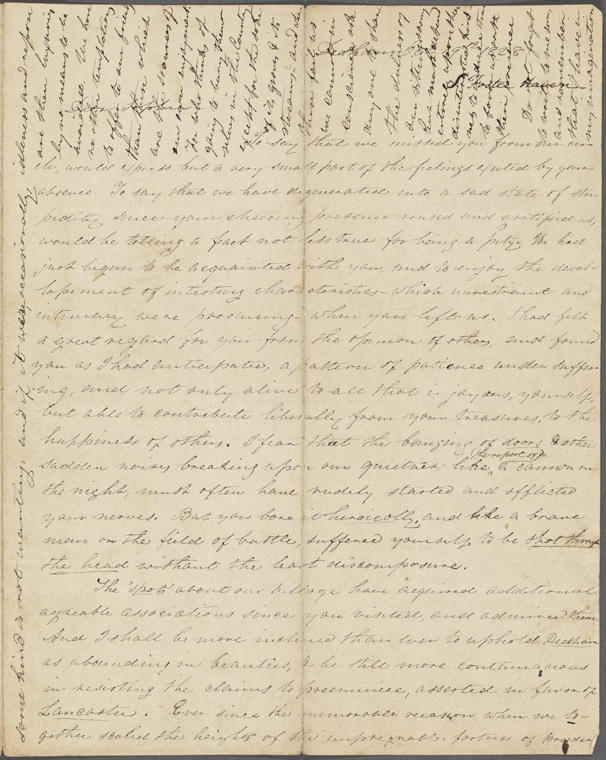 To say that we missed you from our cir
cle, would express but a very small part of the feelings excited by your
absence. To say that we have degenerated into a sad state of stu
pidity since your cheering presence roused and gratified us,
would be telling a fact not less true for being a pity. We had
just begun to be acquainted with you, and to enjoy the devel-
lopement of intersting characteristics - which unrestraint and
intimacy were producing - when you left us. I had felt
a great regard for you from the opinion of others, and found
you as I had anticipated, a pattern of patience under suffer
ing, and not only alive to all that is joyous, yourself,
but able to contribute liberally from your treasures, to the
happiness of others. I fear that the banging of doors & other
sudden noises breaking upon our quietness like the report of a cannon in
the night, must often have rudely started and afflicted
your nerves. But you bore it heroically, and like a brave
man on the field of battle, suffered yourself to be shot through
the head without the least discomposure.
The "spots" about our Village have acquired additional
agreable associations since you visited, and admired them.
And I shall be more inclined than ever to uphold Dedham
as abounding in beauties, & be still more contumacious
in resisting the claims to preeminence, asserted in favor of
Lancaster. Ever since the memorable occasion when we to-
gether scaled the heights of the impregnable fortress of Powder
S. Foster Haven
idleness and repose
are then luxuries
by no means to be
We have
no other temptations
to offer to our friends
than those which
are the sources of
our own enjoyment.
for who thinks of
going to bury them
selves in the County
except for the sake
of its groves & its
streams - and the
Do not forget
to write to me soon
and remember
that I have in
my imagination
some kind is not wanting, and if it were occasionally,